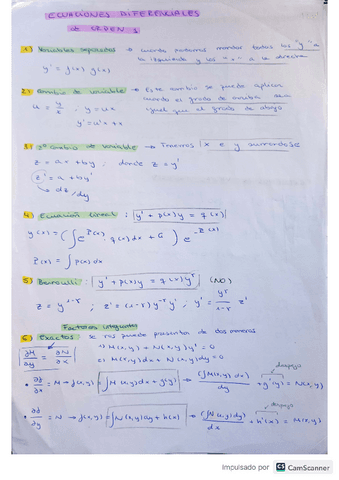 ECUACIONES DIFERENCIALES
de ORDEN 1
1) Variables separadas → cuando podamos mandar todas las "y" a
la izquierda y las "x" a la derecha
y' = f(x) g(x)
2) Cambio de variable → Este cambio se puede aplicar
cuando el grado de arriba sea
igual que el grado de abajo
u = y/x · y = ux
y' = u' + x
3) 2º cambio de variable → Tenemos x e y sumandose
z = ax + by ; donde z = y'
z' = a + by'
→ dz/dy
4) Ecuación lineal: y' + p(x)y = q(x)
y(x) = (∫e^P(x) · q(x)dx + C) e^-P(x)
P(x) = ∫p(x)dx
5) Bernoulli: y' + p(x)y = q(x)y^r (NO)
z = y^1-r ; z' = (1-r) y^-r y' ; y' = y^r/1-r z'
Factores integrantes
6) Exactas se nos puede presentar de dos maneras
∂M/∂y = ∂N/∂x
1) M(x,y) + N(x,y) y' = 0
2) M(x,y)dx + N(x,y)dy = 0
despejo
· ∂f/∂x = M → f(x,y) = ∫M(x,y)dx + g(y) → (∫M(x,y)dx)/dy + g'(y) = N(x,y)
despejo
· ∂f/∂y = N → f(x,y) = ∫N(x,y)dy + h(x) → (∫N(x,y)dy)/dx + h'(x) = M(x,y)
Impulsado por CS CamScanner